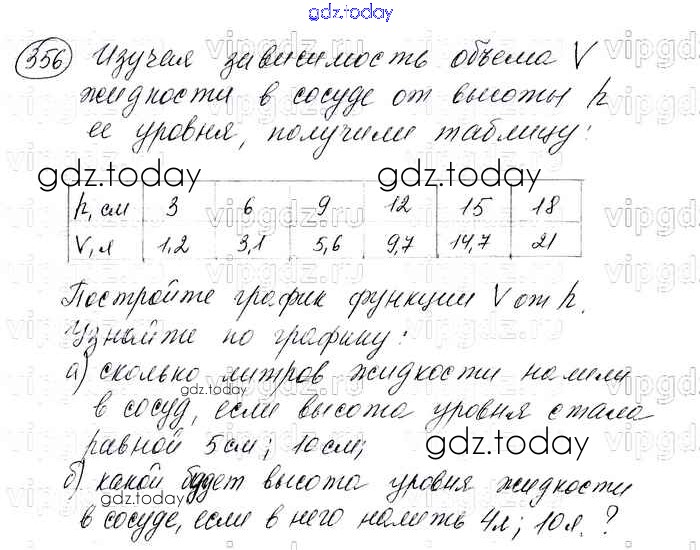 gdz.today
356 Изучая зависимость объема V
жидкости в сосуде от высоты h
ее уровня, получили таблицу:
gdz.today gdz.today
h, см 3 6 9 12 15 18
V, л 1,2 3,1 5,6 9,7 14,7 21
Постройте график функции V от h.
Узнайте по графику:
а) сколько литров жидкости налили
gdz.today
в сосуд, если высота уровня стала
равной 5см; 10см;
gdz.today
б) какой будет высота уровня жидкости
gdz.today
в сосуде, если в него налить 4л; 10л.?